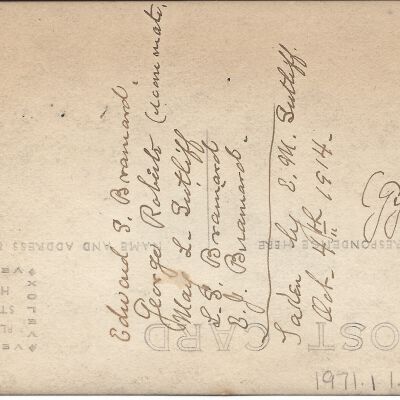 Edward S. Brainard
George Roberts (room mate,
May L. Sutliff
L. S. Brainard
B. J. Brainard.
Taken by E. M. Sutliff.
Oct- 4th 1914-
POST CARD
CORRESPONDENCE HERE
NAME AND ADDRESS
VELOX
1971.11.